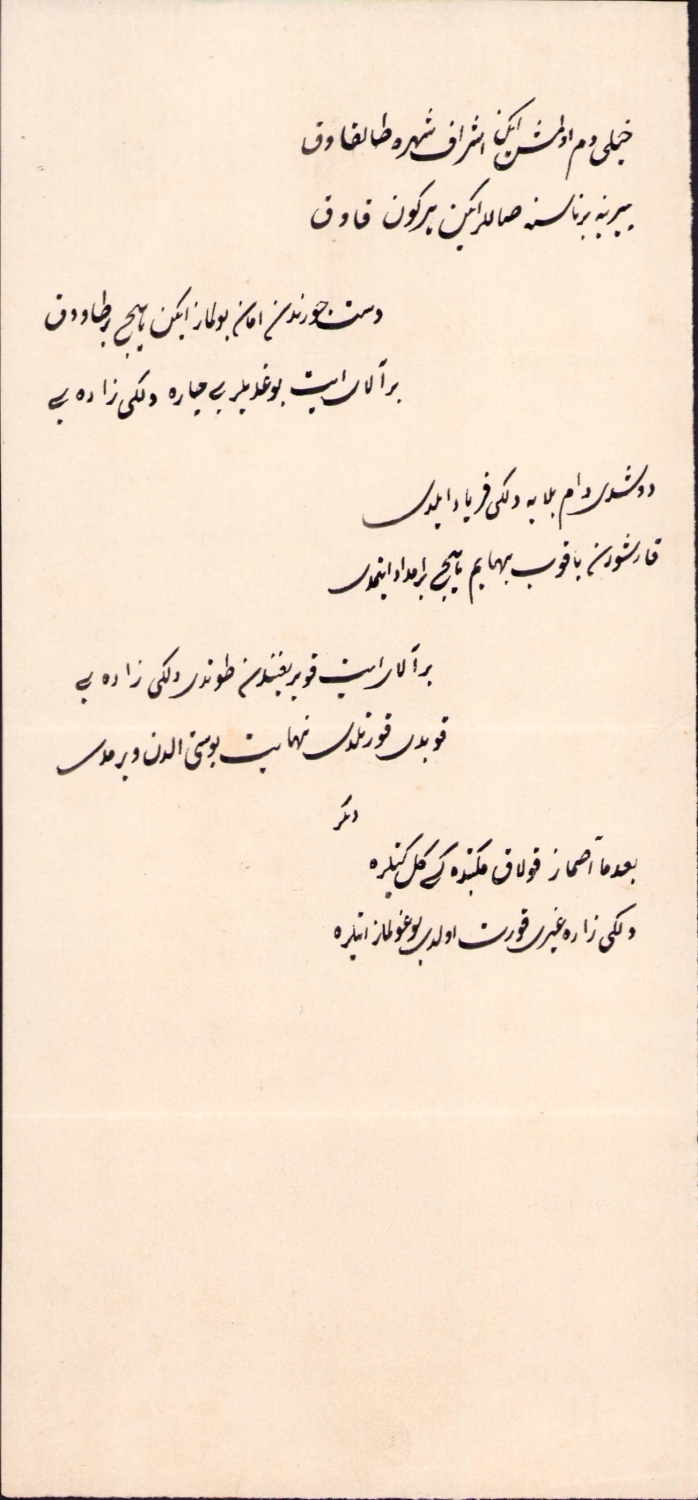 خیلی دم اولمش ایکن اشراف شهره طالقاوق
بیرینه برناسنه صالرایکن هرکون قاوق
دست جورندن امان بولماز ایکن هیچ بر طاووق
بر آلای ایت بوغدیلر بیچاره دلکی زاده یی
دوشدی دام بلایه دلکی فریاد ایلدی
قارشودن باقوب بهایم هیچ بر امداد ایتمدی
بر آلای ایت قویریغندن طوتدی دلکی زاده یی
قویدی قورتلدی نهایت پوستی الدن ویرمدی
دیگر
بعدما آصماز قولاق مکتبده کی کل ایتلره
دلکی زاده غیری قورت اولدی بوغولماز ایتلره